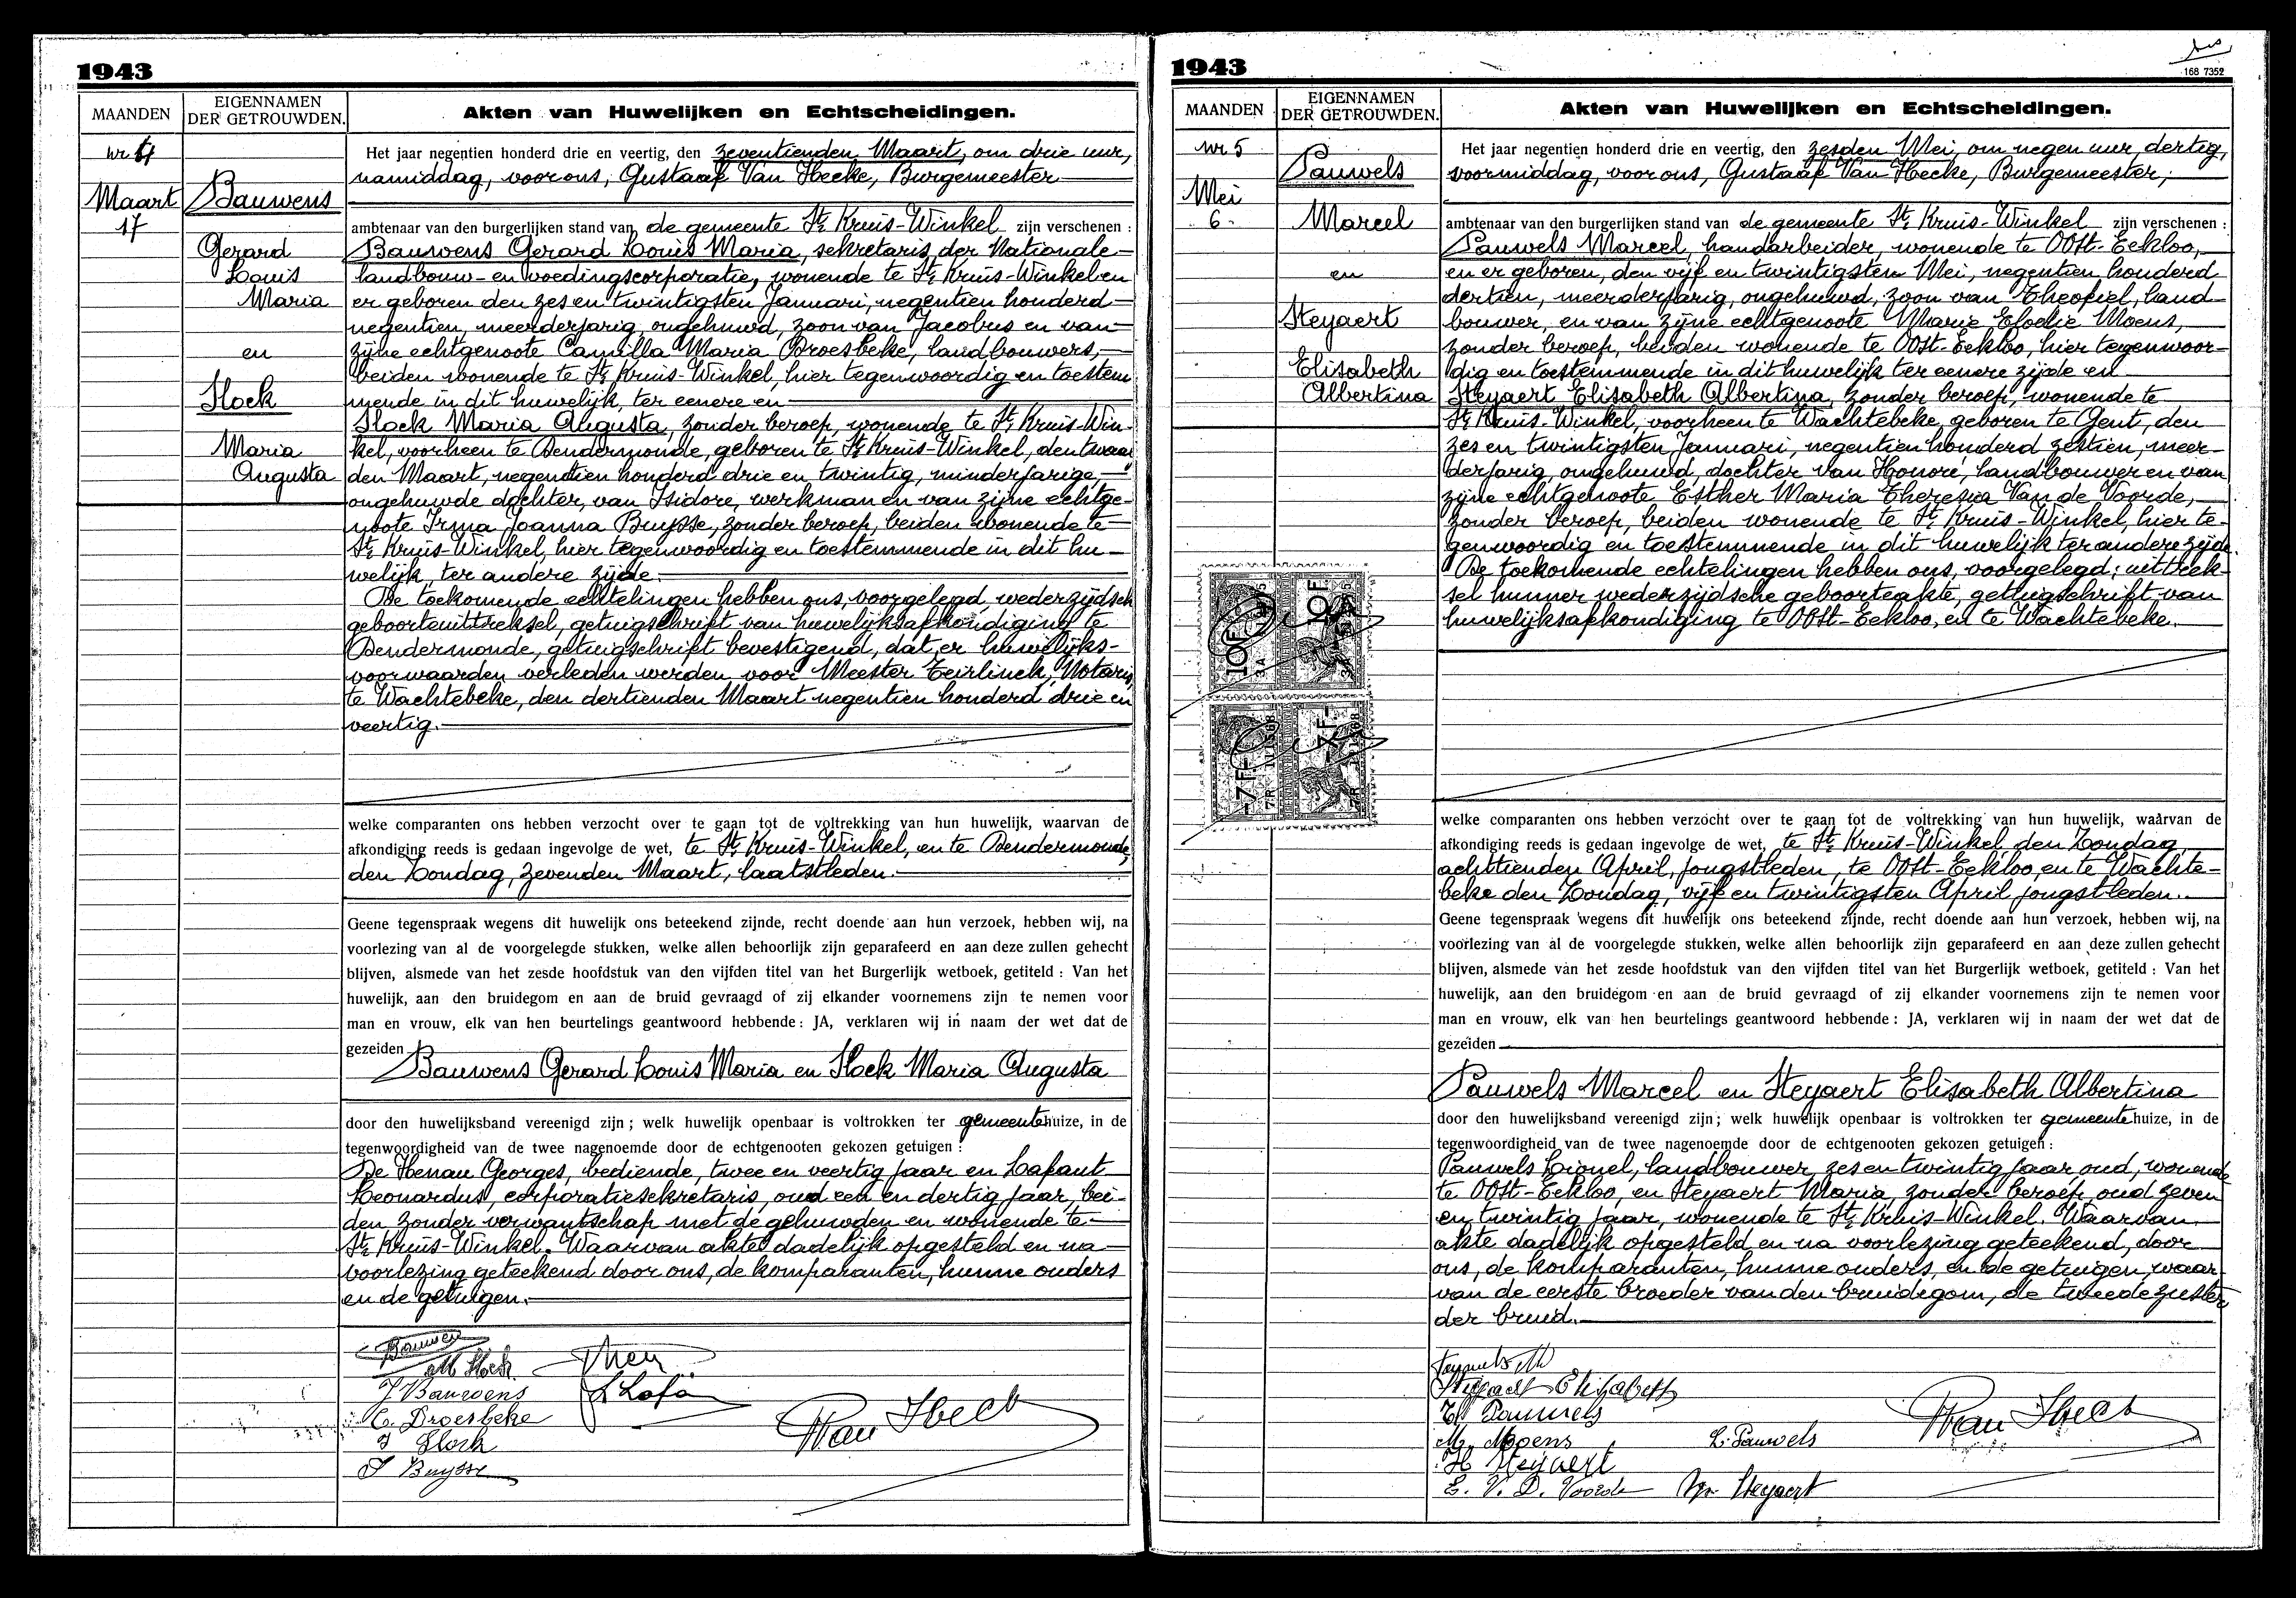 1943
MAANDEN
EIGENNAMEN
DER GETROUWDEN.
Akten van Huwelijken en Echtscheidingen.
nr 4
Maart
17
Bauwens
Gerard
Louis
Maria
en
Slock
Maria
Augusta
Het jaar negentien honderd drie en veertig, den zeventienden Maart, om drie uur,
namiddag, voor ons, Gustaaf Van Hecke, Burgemeester
ambtenaar van den burgerlijken stand van de gemeente St Kruis-Winkel zijn verschenen :
Bauwens Gerard Louis Maria, sekretaris der Nationale
landbouw- en voedingscorporatie, wonende te St Kruis-Winkel en
er geboren den zes en twintigsten Januari, negentien honderd
negentien, meerderjarig, ongehuwd, zoon van Jacobus en van
zijne echtgenoote Camilla Maria Droesbeke, landbouwers,
beiden wonende te St Kruis-Winkel, hier tegenwoordig en toestem
mende in dit huwelijk, ter eenere en
Slock Maria Augusta, zonder beroep, wonende te St Kruis-Win-
kel, voorheen te Dendermonde, geboren te St Kruis-Winkel, den twaal
den Maart, negentien honderd drie en twintig, minderjarige,
ongehuwde dochter, van Isidore, werkman en van zijne echtge-
noote Irma Joanna Buysse, zonder beroep, beiden wonende te
St Kruis-Winkel, hier tegenwoordig en toestemmende in dit hu-
welijk, ter andere zijde.
De toekomende echtelingen hebben ons, voorgelegd, wederzijdsch
geboorteuittreksel, getuigschrift van huwelijksafkondiging te
Dendermonde, getuigschrift bevestigend, dat er huwelijks-
voorwaarden verleden werden voor Meester Teirlinck, Notaris,
te Wachtebeke, den dertienden Maart negentien honderd drie en
veertig.
welke comparanten ons hebben verzocht over te gaan tot de voltrekking van hun huwelijk, waarvan de
afkondiging reeds is gedaan ingevolge de wet, te St Kruis-Winkel, en te Dendermonde,
den Zondag, zevenden Maart, laatstleden.
Geene tegenspraak wegens dit huwelijk ons beteekend zijnde, recht doende aan hun verzoek, hebben wij, na
voorlezing van al de voorgelegde stukken, welke allen behoorlijk zijn geparafeerd en aan deze zullen gehecht
blijven, alsmede van het zesde hoofdstuk van den vijfden titel van het Burgerlijk wetboek, getiteld : Van het
huwelijk, aan den bruidegom en aan de bruid gevraagd of zij elkander voornemens zijn te nemen voor
man en vrouw, elk van hen beurtelings geantwoord hebbende : JA, verklaren wij in naam der wet dat de
gezeiden
Bauwens Gerard Louis Maria en Slock Maria Augusta
door den huwelijksband vereenigd zijn ; welk huwelijk openbaar is voltrokken ter gemeentehuize, in de
tegenwoordigheid van de twee nagenoemde door de echtgenooten gekozen getuigen :
De Henau Georges, bediende, twee en veertig jaar en Lafaut
Leonardus, corporatiesekretaris, oud een en dertig jaar, bei-
den zonder verwantschap met de gehuwden en wonende te
St Kruis-Winkel. Waarvan akte dadelijk opgesteld en na
voorlezing geteekend door ons, de komparanten, hunne ouders
en de getuigen.
Bauwens
M Slock
J Bauwens
C. Droesbeke
I Slock
I Buysse
Van Heck
1943
168 7352
MAANDEN
EIGENNAMEN
DER GETROUWDEN.
Akten van Huwelijken en Echtscheidingen.
nr 5
Mei
6.
Pauwels
Marcel
en
Steyaert
Elisabeth
Albertina
Het jaar negentien honderd drie en veertig, den zesden Mei, om negen uur, dertig,
voormiddag, voor ons, Gustaaf Van Hecke, Burgemeester,
ambtenaar van den burgerlijken stand van de gemeente St Kruis-Winkel zijn verschenen :
Pauwels Marcel, handarbeider, wonende te Oost-Eekloo,
en er geboren, den vijf en twintigsten Mei, negentien honderd
dertien, meerderjarig, ongehuwd, zoon van Theofiel, land-
bouwer, en van zijne echtgenoote Marie Elodie Moens,
zonder beroep, beiden wonende te Oost-Eekloo, hier tegenwoor-
dig en toestemmende in dit huwelijk ter eenere zijde en
Steyaert Elisabeth Albertina, zonder beroep, wonende te
St Kruis-Winkel, voorheen te Wachtebeke, geboren te Gent, den
zes en twintigsten Januari, negentien honderd zestien, meer-
derjarig, ongehuwd, dochter van Honoré, landbouwer en van
zijne echtgenoote Esther Maria Theresia Van de Voorde,
zonder beroep, beiden wonende te St Kruis-Winkel, hier te-
genwoordig en toestemmende in dit huwelijk ter andere zijde.
De toekomende echtelingen hebben ons, voorgelegd ; uittrek-
sel hunner wederzijdsche geboorteakte, getuigschrift van
huwelijksafkondiging te Oost-Eekloo, en te Wachtebeke.
10F
10F
7F
7F
welke comparanten ons hebben verzocht over te gaan tot de voltrekking van hun huwelijk, waarvan de
afkondiging reeds is gedaan ingevolge de wet, te St Kruis-Winkel, den Zondag,
achttienden April, jongstleden, te Oost-Eekloo, en te Wachte-
beke den Zondag, vijf en twintigsten April jongstleden.
Geene tegenspraak wegens dit huwelijk ons beteekend zijnde, recht doende aan hun verzoek, hebben wij, na
voorlezing van al de voorgelegde stukken, welke allen behoorlijk zijn geparafeerd en aan deze zullen gehecht
blijven, alsmede van het zesde hoofdstuk van den vijfden titel van het Burgerlijk wetboek, getiteld : Van het
huwelijk, aan den bruidegom en aan de bruid gevraagd of zij elkander voornemens zijn te nemen voor
man en vrouw, elk van hen beurtelings geantwoord hebbende : JA, verklaren wij in naam der wet dat de
gezeiden
Pauwels Marcel en Steyaert Elisabeth Albertina
door den huwelijksband vereenigd zijn ; welk huwelijk openbaar is voltrokken ter gemeentehuize, in de
tegenwoordigheid van de twee nagenoemde door de echtgenooten gekozen getuigen :
Pauwels Lionel, landbouwer, zes en twintig jaar, oud, wonende
te Oost-Eekloo, en Steyaert Maria, zonder beroep, oud zeven
en twintig jaar, wonende te St Kruis-Winkel. Waarvan
akte dadelijk opgesteld en na voorlezing geteekend, door
ons, de komparanten, hunne ouders, en de getuigen, waar-
van de eerste broeder van den bruidegom, de tweede zuster
der bruid.
Steyaert Elisabeth
Th Pauwels
M. Moens
H Steyaert
E. V. D. Voorde
L. Pauwels
Steyaert
Van Heck